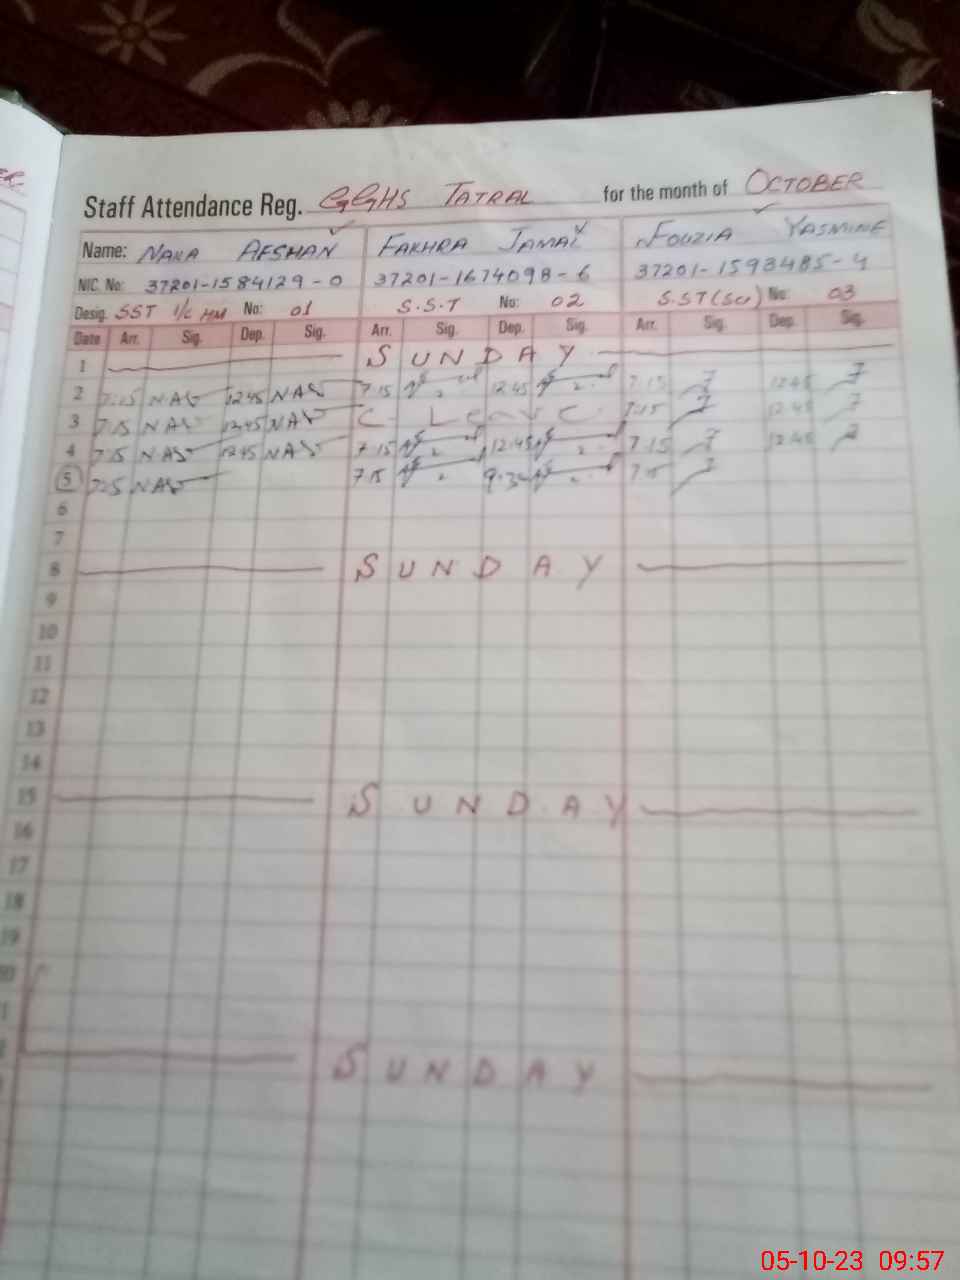 ER.
Staff Attendance Reg. GGHS TATRAL for the month of OCTOBER
Name: NAKA AFSHAN FAKHRA JAMAL FOUZIA YASMINE
NIC. No: 37201-1584129-0 37201-1674098-6 37201-1593485-4
Desig. SST I/C HM No: 01 S.S.T No: 02 S.ST(Sc) No: 03
Date Arr. Sig. Dep. Sig. Arr. Sig. Dep. Sig. Arr. Sig. Dep. Sig.
1 SUNDAY
2 7:15 NAS 12:45 NAS 7:15 12:45 7:15 12:45
3 7:15 NAS 12:45 NAS C- Leave 7:15 12:45
4 7:15 NAS 12:45 NAS 7:15 12:45 7:15 12:45
5 7:15 NAS 7:15 7:15
6
7
8 SUNDAY
9
10
11
12
13
14
15 SUNDAY
16
17
18
19
SUNDAY
05-10-23 09:57